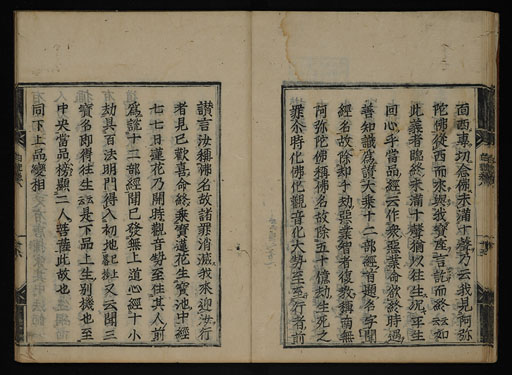 面西專切念佛未滿十聲乃云我見阿弥
陀佛從西而來與我寶座言訖而終云如
此義者臨終未滿十聲猶以往生況平生
回心乎當品經云作衆惡業命欲終時遇
善知識爲說大乘十二部經首題名字聞
經名故除却千劫惡業智者復教稱南無
阿弥陀佛稱佛名故除五十億劫生死之
罪尒時化佛化觀音化大勢至至行者前
讃言汝稱佛名故諸罪消滅我來迎汝行
者見已歡喜命終乘寶蓮花生寶池中經
七七日蓮花乃開時觀音勢至住其人前
爲說十二部經聞已發無上道心經十小
劫具百法明門得入初地又云聞三
寶名即得往生云是下品上生別機也至
中央當品榜顯二人菩薩此故也
同下上品變相